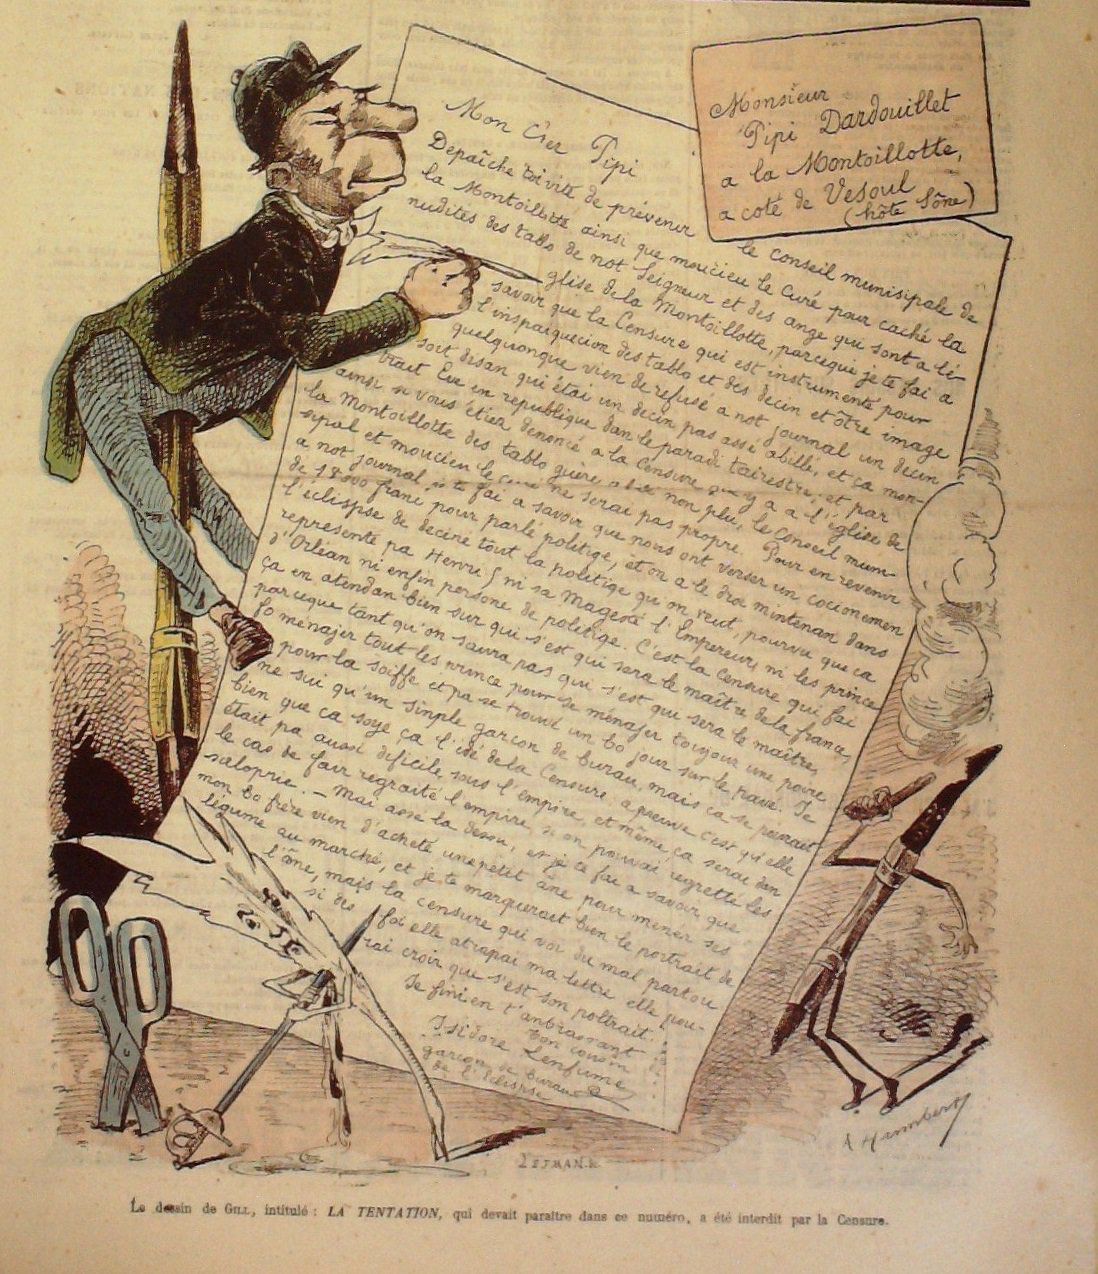 Monsieur
Pipi Dardouillet
a la Montoillotte,
a coté de Vesoul
(hôte Sône)
Mon Cher Pipi
Depaîche toi vite de prévenir le conseil munisipale de
la Montoillotte ainsi que moucieu le Curé pour caché la
nudités des tablo de not Seigneur et des ange qui sont a l'é-
glise de la Montoillotte, parceque je te fai a
savoir que la Censure qui est instrumenté pour
l'insparquecion des tablo et des decin et ôtre image
quelquonque vien de refusé a not journal un decin
soit disan qui étai un decin pas assé abillé, et ça mon-
trait Eve en republique dan le paradi tairestre, et par
ainsi si vous étiez denoncé a la Censure que y a a l'église de
la Montoillotte des tablo guère abillé non plus, le Conseil muni-
sipal et moucieu le curé ne serai pas propre. Pour en revenir
a not journal je te fai a savoir que nous ont verser un cocionemen
de 18000 franc pour parlé politige, et on a le droi mintenan dans
l'eclispse de deciné tout la politige qu'on veut, pourvu que ca
represente pa Henri 5 ni sa Magesté l'Empereur, ni les prince
d'Orléan ni enfin persone de politige. C'est la Censure qui fai
ça en atendan bien sur qui s'est qui sera le maître de la france,
parceque tant qu'on saura pas qui s'est qui sera le maître,
fo menajer tout les prince pour se ménajer toujour une poire
pour la soiffe et pa se trouvé un bo jour sur le pavé. Je
ne sui qu'un simple garcon de burau, mais ca se pourrait
bien que ça soye ça l'idé de la Censure. a preuve c'est qu'elle
était pa aussi dificile sous l'empire, et même ça serai dan
le cas de fair regraité l'empire, si on pouvai regretté les
saloprie. — Mai assé la dessu, et je te fai a savoir que
mon bo frère vien d'acheté une petit âne pour mener ses
légume au marché, et je te marquerait bien le portrait de
l'âne, mais la censure qui voi du mal partou
si des foi elle atrapai ma lettre elle pou-
rai croir que s'est son poltrait.
Je fini en t'anbrassant
Ton cousin
Isidore Lenfumé
garçon de burau
de l'Eclispse
A Humbert
LEFMAN.S.
Le dessin de GILL, intitulé : LA TENTATION, qui devait paraître dans ce numéro, a été interdit par la Censure.